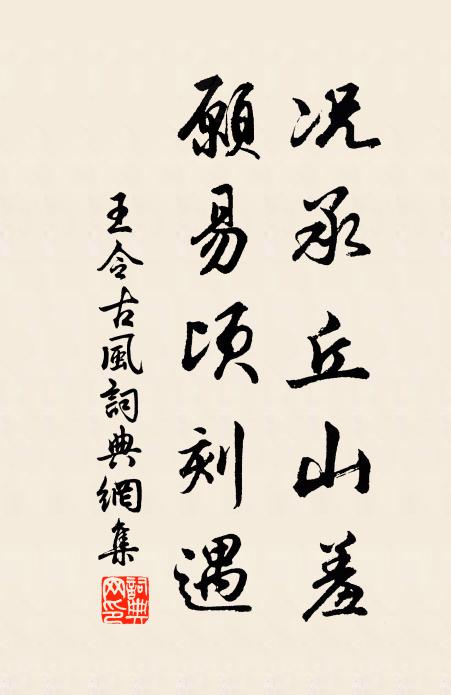 况承丘山羞
願易頃刻遇
王令古風詞典網集
詞典
网印